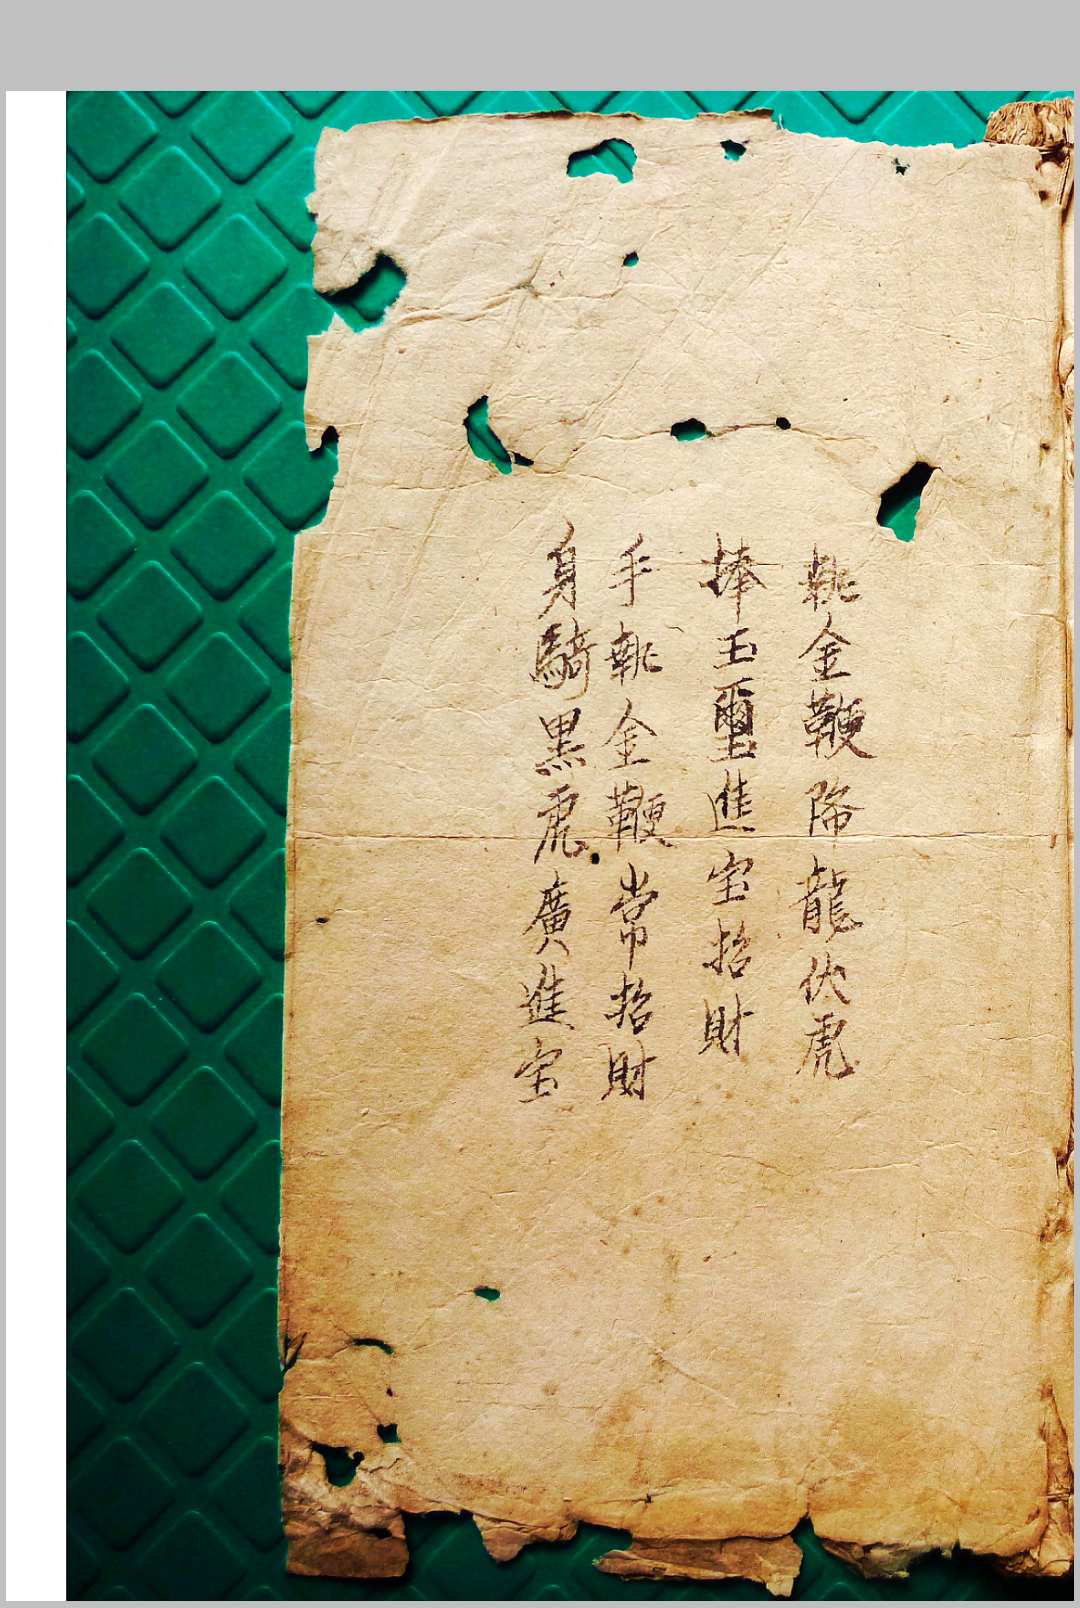 執金鞭降龍伏虎
捧玉璽進宝招財
手執金鞭常招財
身騎黑虎廣進宝